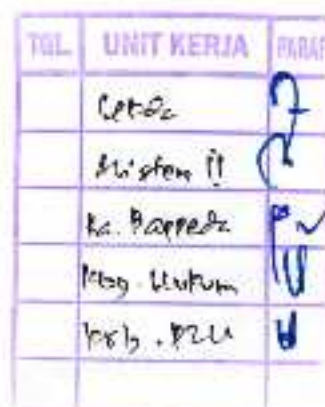 TGL. UNIT KERJA PARAF
Sekda
Asisten II
Ka. Bappeda
Kbg. Hukum